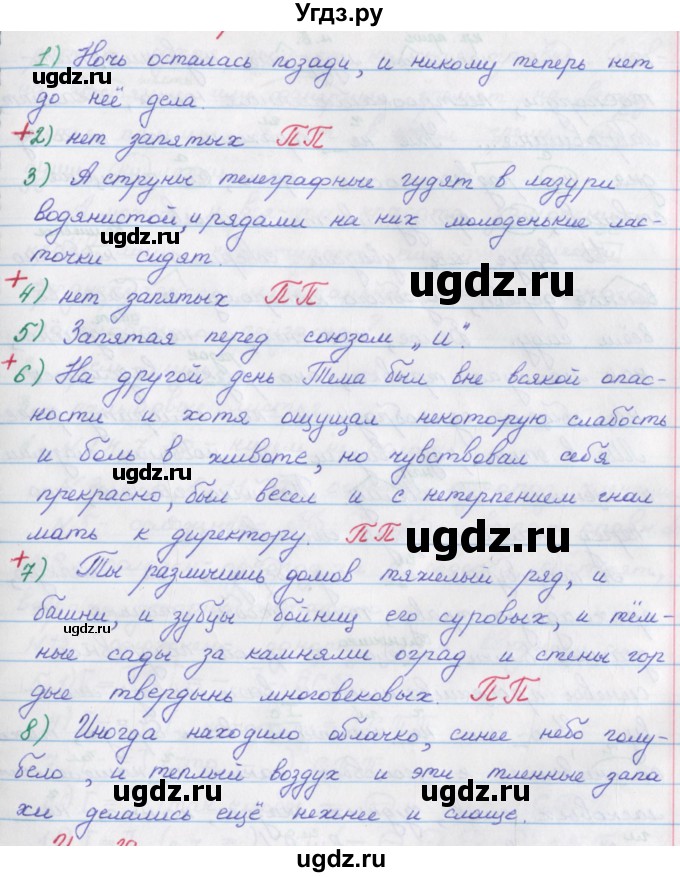 Угдз.ру
1) Ночь осталась позади, и никому теперь нет
до неё дела.
+2) нет запятых ПП
3) А струны телеграфные гудят в лазури
водянистой, и рядами на них молоденькие лас-
точки сидят.
+4) нет запятых ПП
5) Запятая перед союзом „И".
+6) На другой день Тема был вне всякой опас-
ности и хотя ощущал некоторую слабость
и боль в животе, но чувствовал себя
прекрасно, был весел и с нетерпением гнал
мать к директору. ПП
+7) Ты различишь домов тяжелый ряд, и
башни, и зубцы бойниц его суровых, и тём-
ные сады за камнями оград и стены гор
дые твердынь многовековых. ПП
8) Иногда находило облачко, синее небо голу-
бело, и теплый воздух и эти тленные запа
хи делались ещё нежнее и слаще.
ugdz.ru
ugdz.ru
ugdz.ru
ugdz.ru
ugdz.ru
ugdz.ru
ugdz.ru
ugdz.ru
ugdz.ru
ugdz.ru